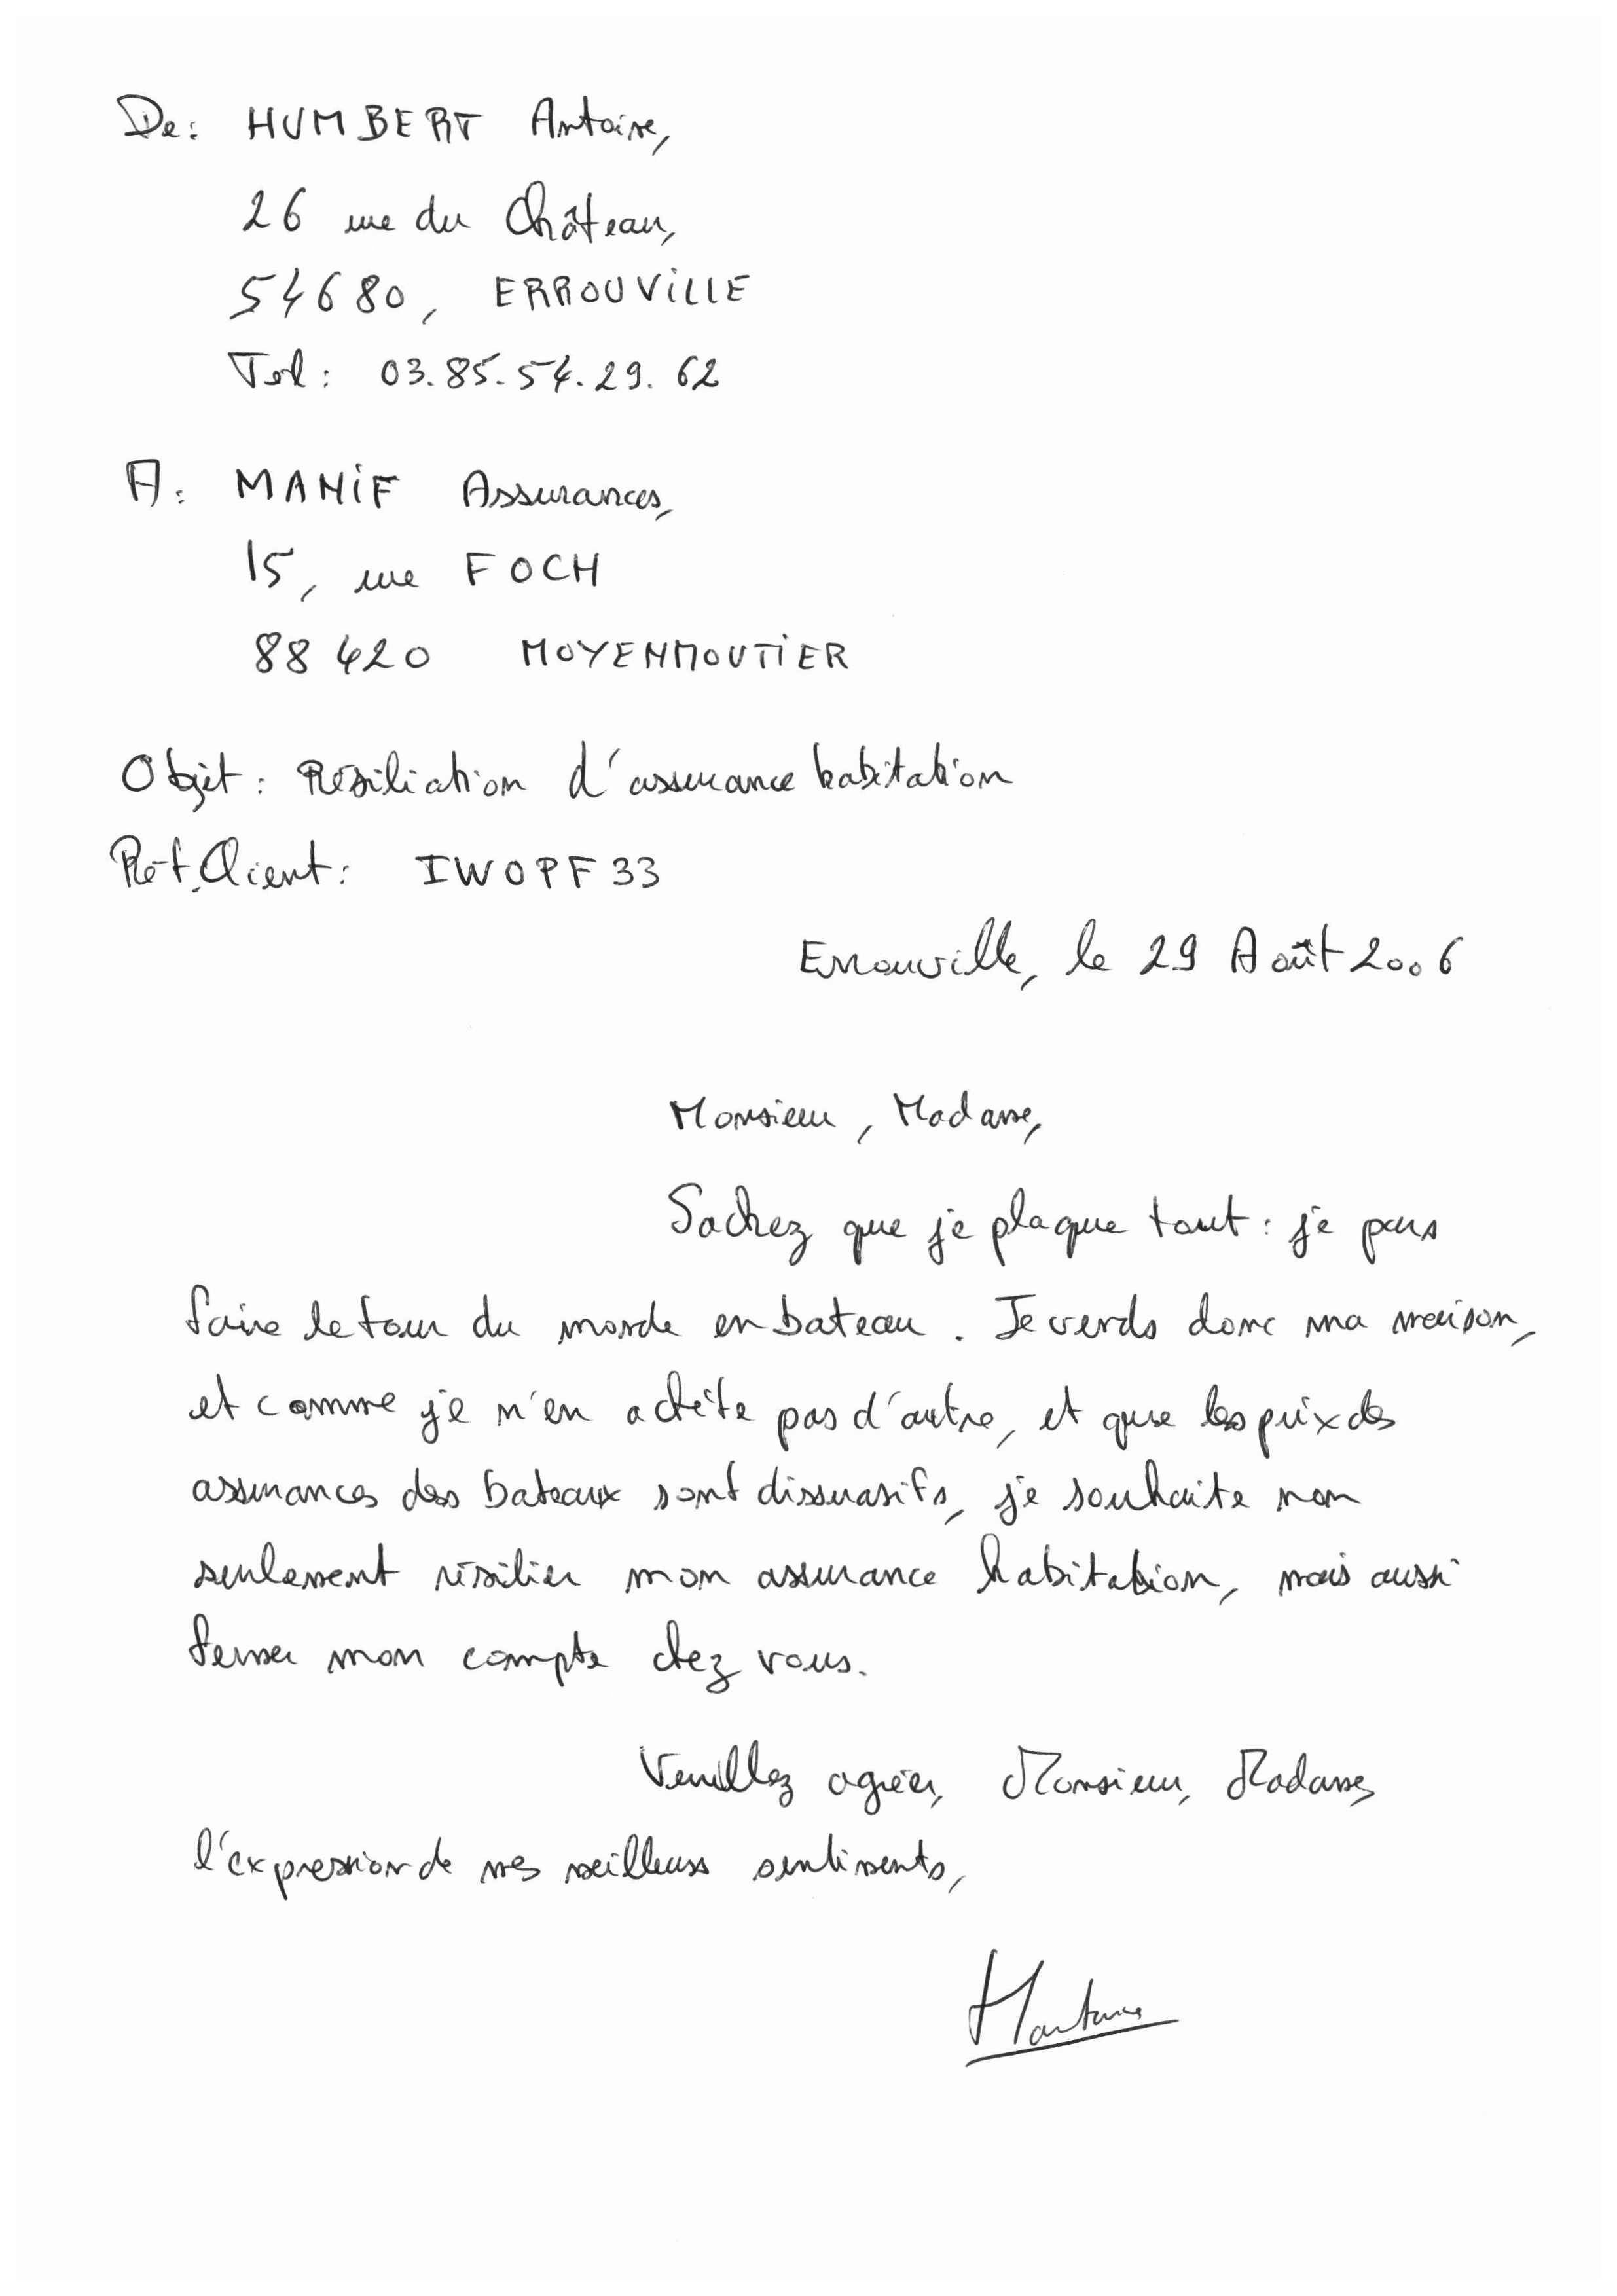 De: HUMBERT Antoine,
26 rue du Château,
54680, ERROUVILLE
Tel: 03.85.54.29.62
A: MANIF Assurances,
15, rue FOCH
88420 MOYENMOUTIER
Objet: Résiliation d'assurance habitation
Réf.Client: IWOPF33
Errouville, le 29 Août 2006
Monsieur, Madame,
Sachez que je plaque tout: je pars
faire le tour du monde en bateau. Je vends donc ma maison,
et comme je n'en achète pas d'autre, et que les prix des
assurances des bateaux sont dissuasifs, je souhaite non
seulement résilier mon assurance habitation, mais aussi
fermer mon compte chez vous.
Veuillez agréer, Monsieur, Madame,
l'expression de mes meilleurs sentiments,